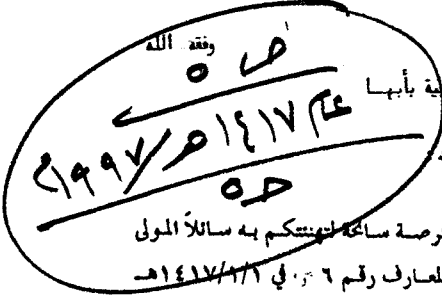 وفقه الله
ص ٥
ية بأبها
عام ١٤١٧هـ/١٩٩٧م
حـ٥
رصة سانحة لتهنئتكم به سائلاً المولى
لمعارف رقم ٦ في ١٤١٧/١/١هـ